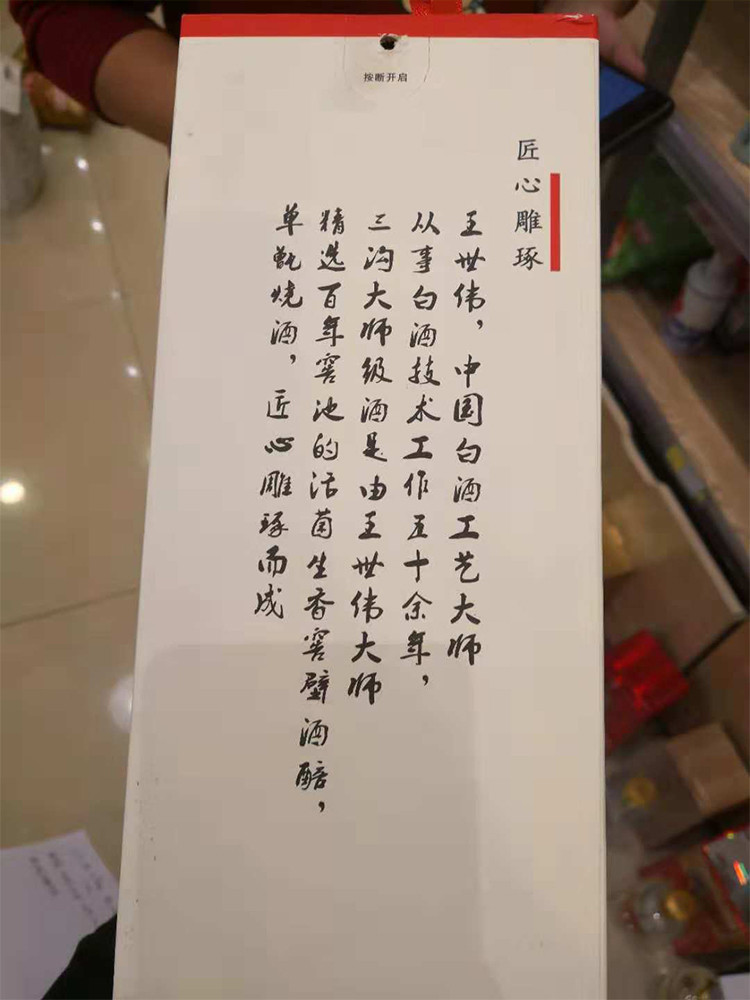 按断开启
匠心雕琢
王世伟，中国白酒工艺大师
从事白酒技术工作五十余年，
三沟大师级酒是由王世伟大师
精选百年窖池的活菌生香窖壁酒醅，
单甑烧酒，匠心雕琢而成